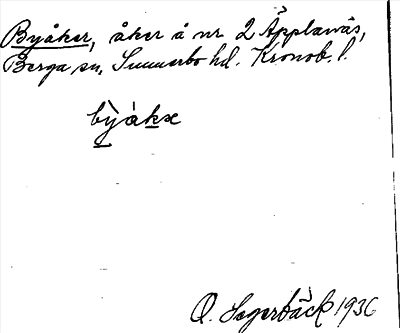 Byåker, åker å nr 2 Äpplanäs,
Berga sn, Sunnerbo hd. Kronob. l.
bỳåkæ
O. Segerbäck 1936